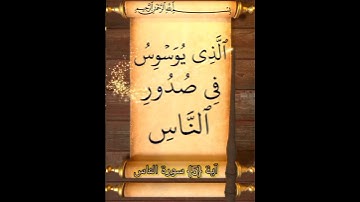 بسم الله الرحمن الرحيم
ٱلَّذِى يُوَسْوِسُ
فِى صُدُورِ
ٱلنَّاسِ
آية (5) سورة الناس